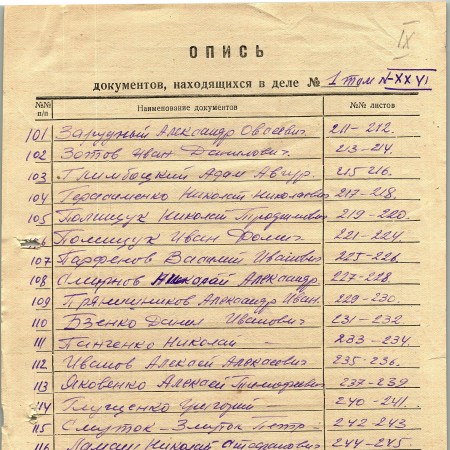 IX
ОПИСЬ
документов, находящихся в деле № 1 том N-XXVI
№№ п/п Наименование документов №№ листов
101 Зарудный Александр 211-212.
102 Зотов Иван Данилович. 213-214.
103 Адам 215-216.
104 Герасименко Николай Николаевич 217-218.
105 Полищук Николай 219-220.
Полищук Иван 221-224.
107 Парфенов Василий Иванович 225-226.
108 Смирнов Николай Александр. 227-228.
109 Прянишников Александр Иван. 229-230.
110 Бзенко Данил Иванович 231-232
111 Панченко Николай - 233-234.
112 Иванов Алексей Алексеевич 235-236.
113 Яковенко Алексей Тимофеевич 237-239
114 Глущенко Григорий - 240-241.
115 Смуток-Змуток Петр - 242-243
116 Николай 244-245.